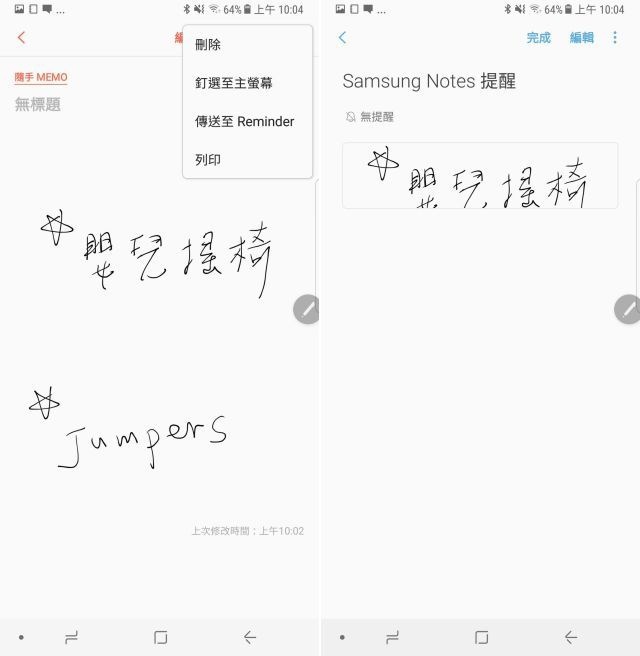 64% 上午 10:04
編
隨手 MEMO
無標題
刪除
釘選至主螢幕
傳送至 Reminder
列印
嬰兒搖椅
Jumpers
上次修改時間：上午10:02
64% 上午 10:04
完成 編輯
Samsung Notes 提醒
無提醒
嬰兒搖椅